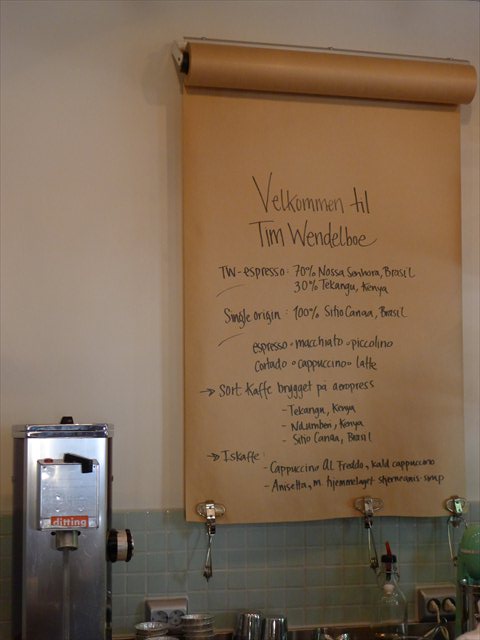 Velkommen til
Tim Wendelboe
TW-espresso: 70% Nossa Senhora, Brasil
30% Tekangu, Kenya
Single origin: 100% Sitio Canaa, Brasil
espresso • macchiato • piccolino
Cortado • cappuccino • latte
→ Sort kaffe brygget på aeropress
- Tekangu, Kenya
- Ndumberi, Kenya
- Sitio Canaa, Brasil
→ Iskaffe:
- Cappuccino al Freddo, kald cappuccino
- Anisetta, m. hjemmelaget stjerneanis-sirup
ditting